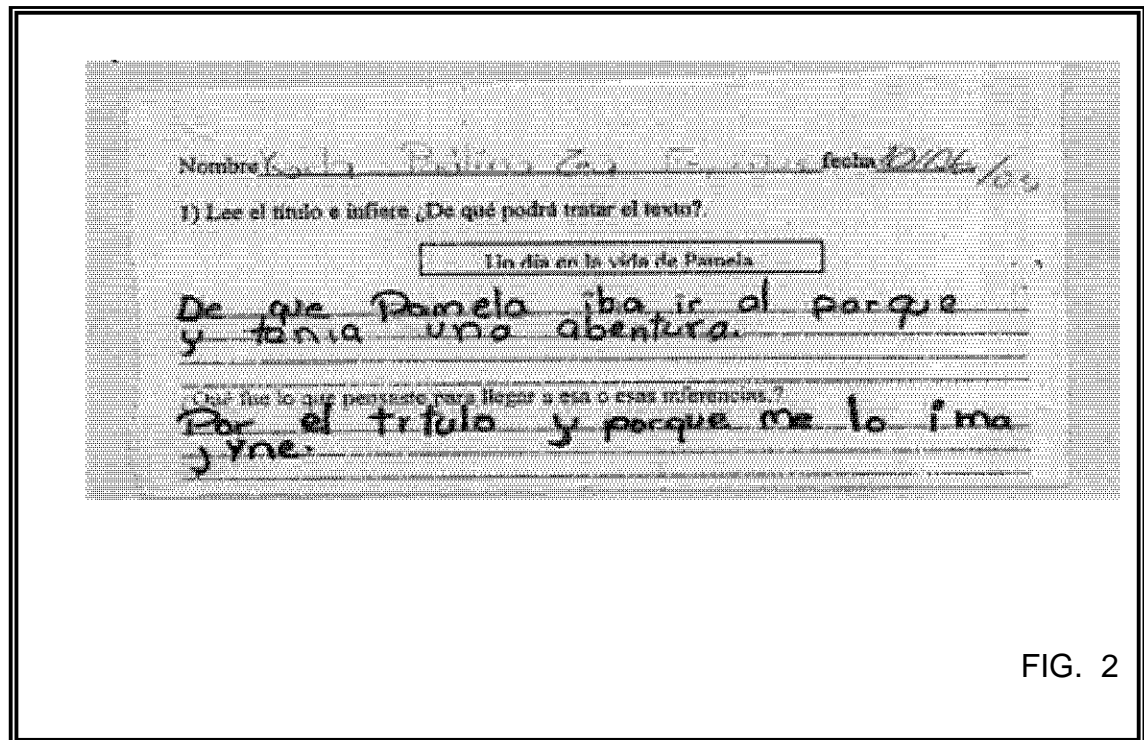 Nombre fecha
1) Lee el título e infiere ¿De qué podrá tratar el texto?.
Un día en la vida de Pamela
De que Pamela iba ir al parque
y tenia una abentura.
¿Qué fue lo que pensaste para llegar a esa o esas inferencias.?
Por el titulo y porque me lo ima
jyne.
FIG. 2